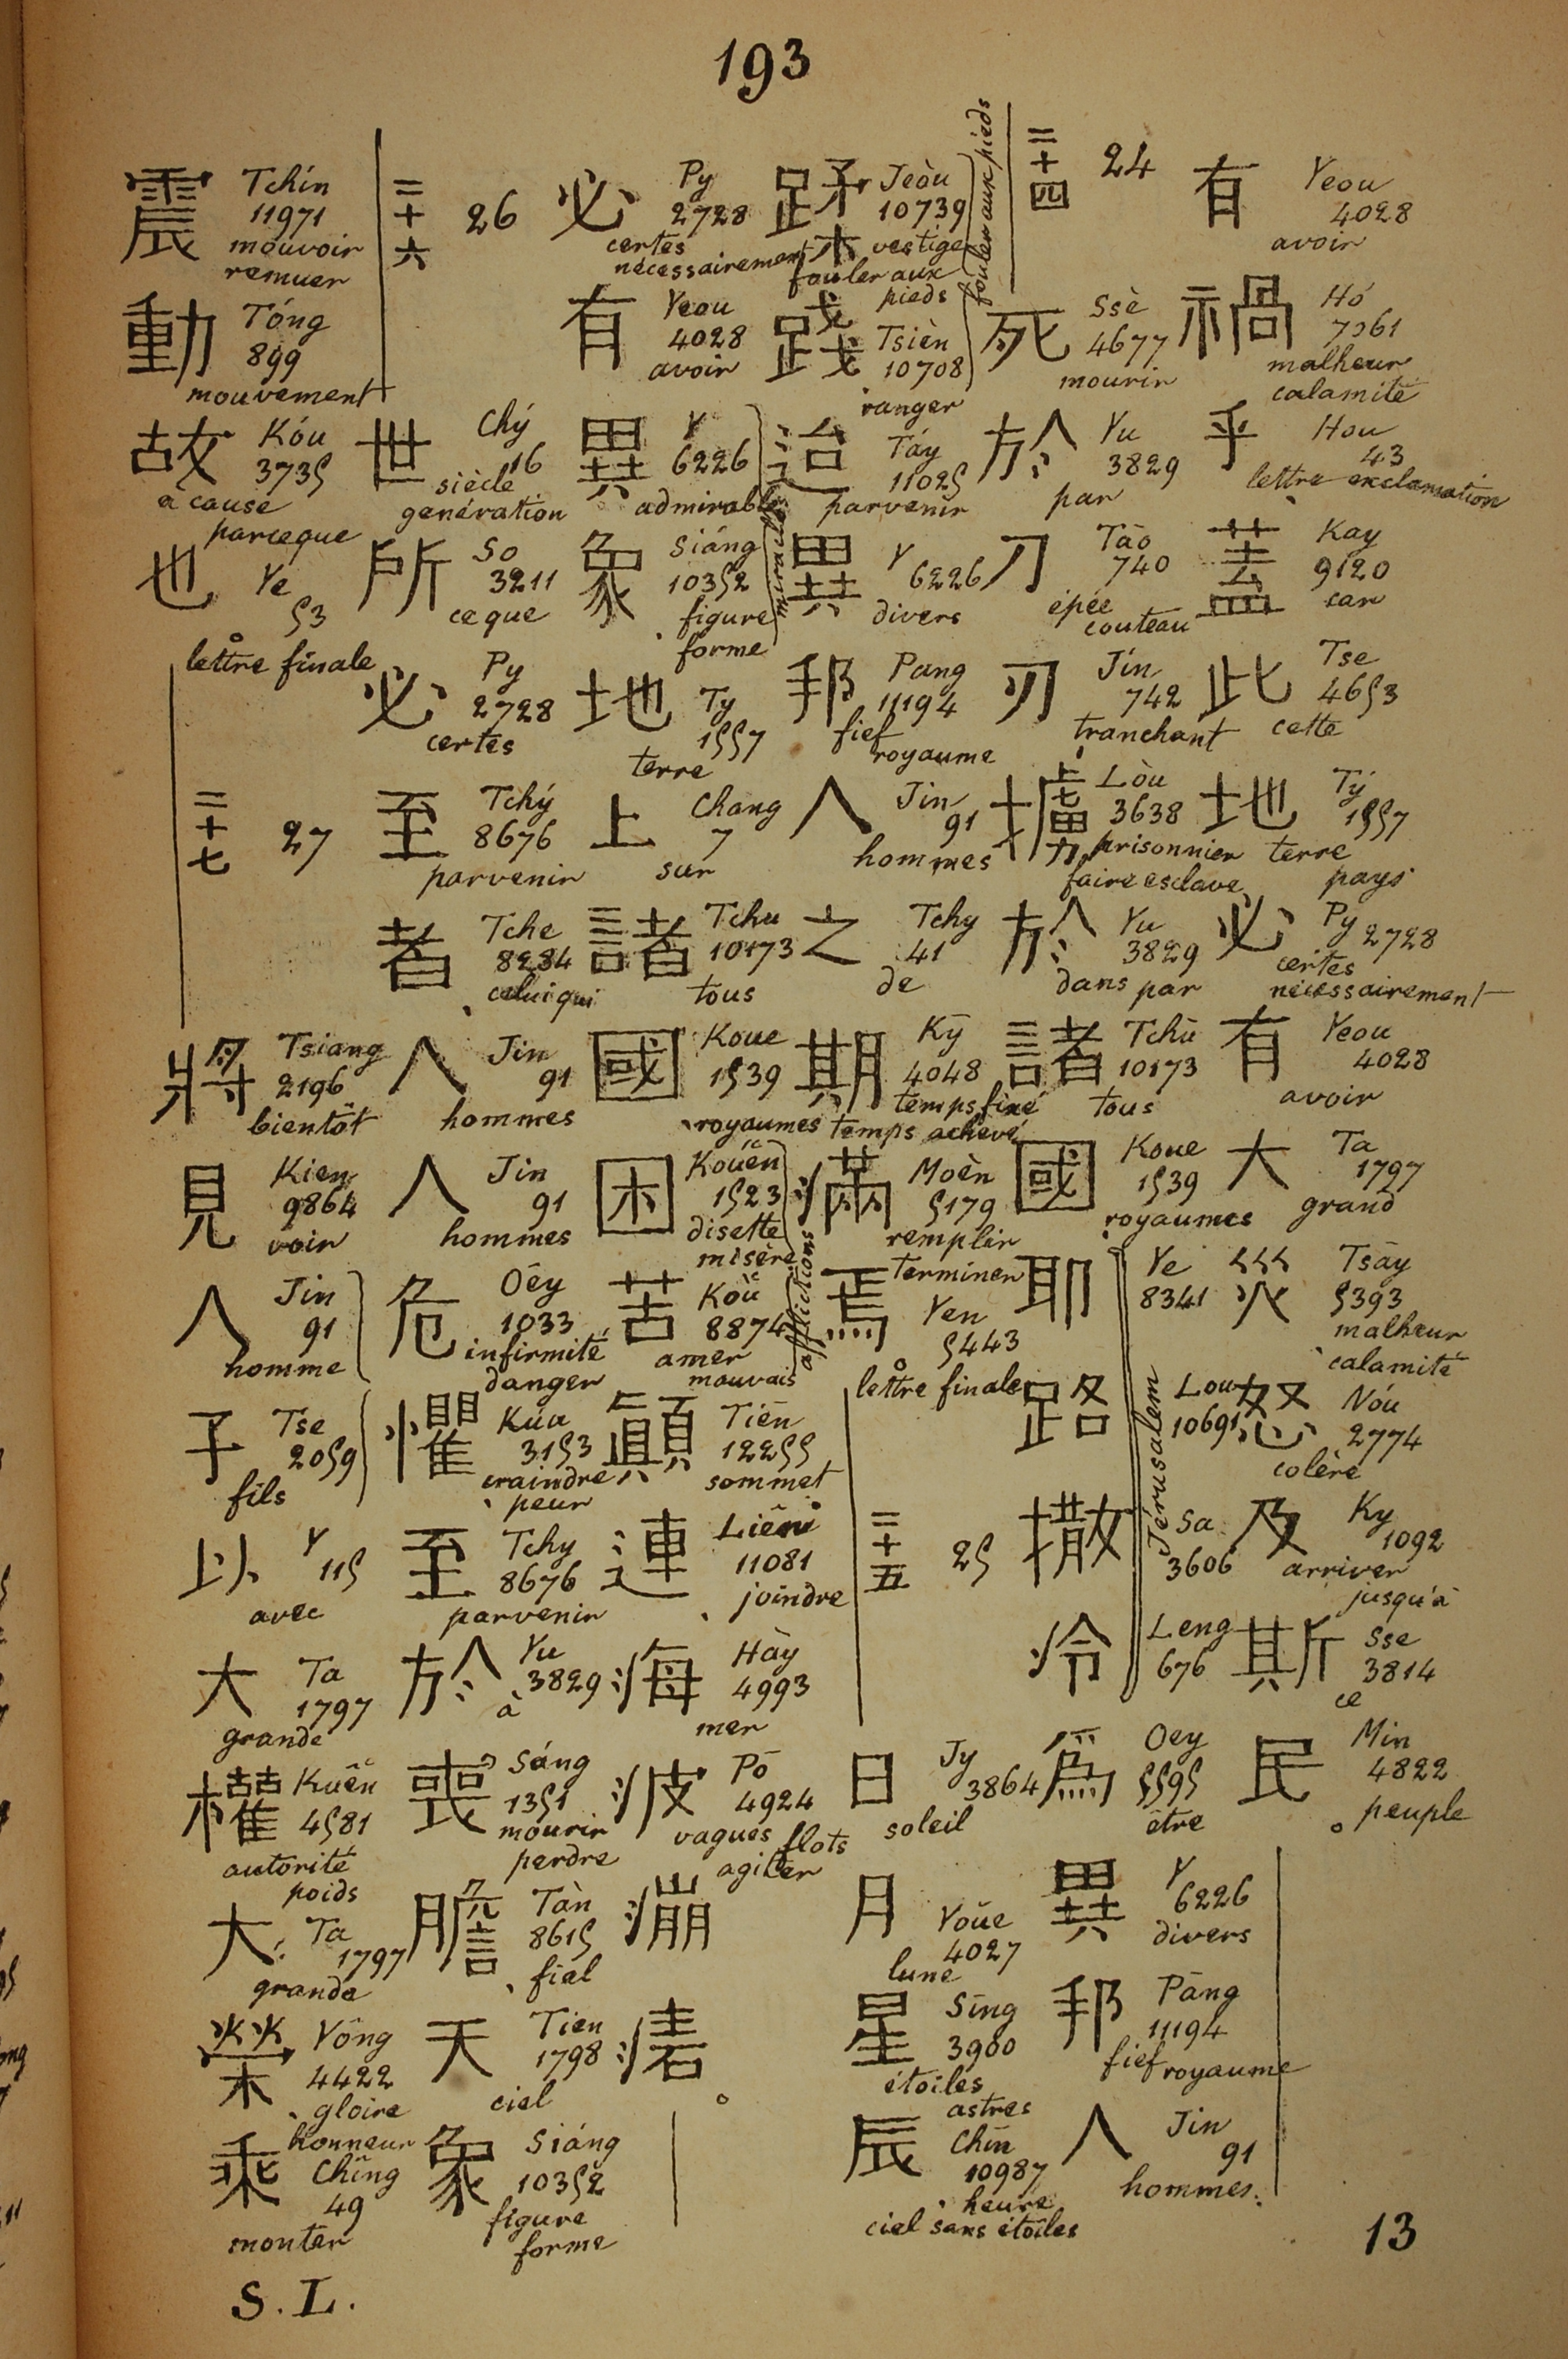 193
二十四 24
有 Yeou
4028
avoir
禍 Hó
7061
malheur
calamité
乎 Hou
43
lettre exclamation
蓋 Kay
9120
car
此 Tse
4653
cette
地 Tý
1557
terre
pays
必 Py 2728
certes
nécessairement
有 Yeou
4028
avoir
大 Ta
1797
grand
災 Tsāy
5393
malheur
calamité
怒 Nóu
2774
colère
及 Ky
1092
arriver
jusqu'à
斯 Sse
3814
ce
民 Min
4822
peuple
死 Ssè
4677
mourir
於 Yu
3829
par
刀 Tāo
740
épée
couteau
刃 Jín
742
tranchant
擄 Lòu
3638
prisonnier
faire esclave
於 Yu
3829
dans par
諸 Tchū
10173
tous
國 Koue
1539
royaumes
耶 Ye
8341
路 Lou
10691
撒 Sa
3606
冷 Leng
676
Jérusalem
為 Oey
5595
être
異 Y
6226
divers
邦 Pāng
11194
fief royaume
人 Jin
91
hommes
蹂 Jeòu
10739
vestige
fouler aux
pieds
踐 Tsièn
10708
ranger
fouler aux pieds
迨 Táy
11025
parvenir
異 Y
6226
divers
邦 Pang
11194
fief
royaume
人 Jin
91
hommes
之 Tchy
41
de
期 Ky
4048
temps fixé
temps achevé
滿 Moèn
5179
remplir
terminer
焉 Yen
5443
lettre finale
二十五 25
日 Jy
3864
soleil
月 Yoüe
4027
lune
星 Sīng
3900
étoiles
astres
辰 Chīn
10987
heure
ciel sans étoiles
必 Py
2728
certes
nécessairement
有 Yeou
4028
avoir
異 Y
6226
admirable
象 Siáng
10352
figure
forme
miracles
地 Ty
1557
terre
上 Chang
7
sur
諸 Tchu
10173
tous
國 Koue
1539
royaumes
困 Kouén
1523
disette
misère
苦 Koŭ
8874
amer
mauvais
afflictions
顛 Tiēn
12255
sommet
連 Liên
11081
joindre
海 Hày
4993
mer
波 Pō
4924
vagues flots
agiter
漰
湱
二十六 26
世 Chý
16
siècle
génération
所 So
3211
ce que
必 Py
2728
certes
至 Tchý
8676
parvenir
者 Tche
8284
celui qui
人 Jin
91
hommes
人 Jin
91
hommes
危 Oêy
1033
infirmité
danger
懼 Kúu
3153
craindre
peur
至 Tchy
8676
parvenir
於 Yu
3829
à
喪 Sáng
1351
mourir
perdre
膽 Tàn
8615
fiel
天 Tien
1798
ciel
象 Siáng
10352
figure
forme
震 Tchín
11971
mouvoir
remuer
動 Tóng
899
mouvement
故 Kóu
3735
à cause
parceque
也 Ye
53
lettre finale
二十七 27
將 Tsiang
2196
bientôt
見 Kien
9864
voir
人 Jin
91
homme
子 Tse
2059
fils
以 Y
115
avec
大 Ta
1797
grande
權 Kuên
4581
autorité
poids
大 Ta
1797
grande
榮 Yông
4422
gloire
honneur
乘 Chîng
49
monter
S. L.
13